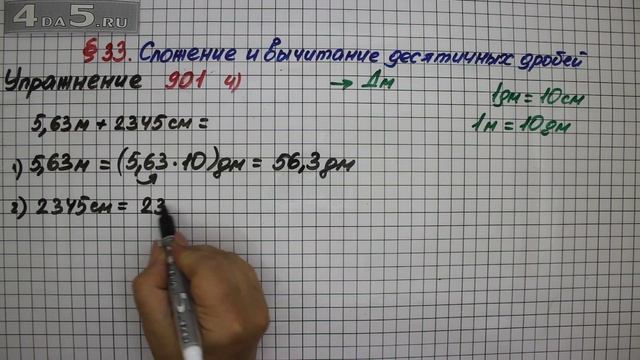 4DA5.RU
§ 33. Сложение и вычитание десятичных дробей
Упражнение 901 4) → дм
1дм = 10см
1м = 10дм
5,63м + 2345см =
1) 5,63м = (5,63·10)дм = 56,3дм
2) 2345см = 23